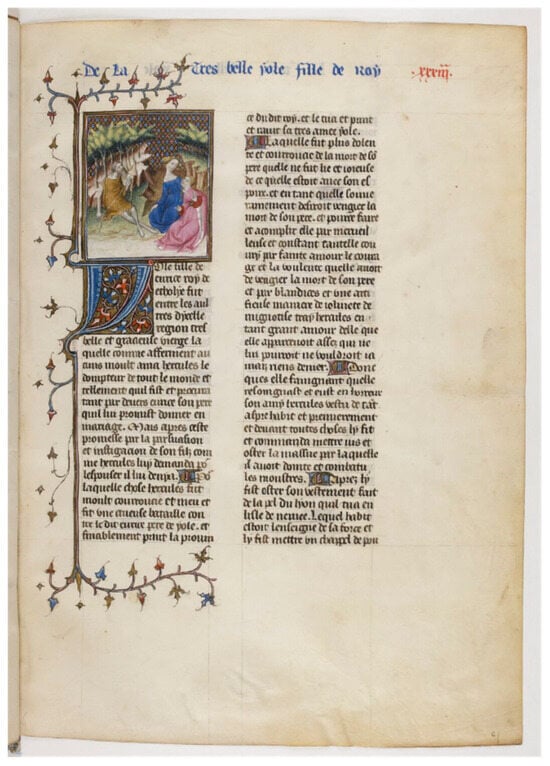 De la Tres belle yole fille de Roy xxxiii.
Yole fille de
eurice roy de
etholye fut
entre les aul
tres dycelle
region tres
belle et gracieuse vierge la
quelle comme afferment au
cuns moult ama hercules le
dompteur de tout le monde et
tellement quil fist et procura
tant par devers eurice son pere
quil lui promist donner en
mariage. Mais apres ceste
promesse par la persuasion
et instigacion de son filz com
me hercules luy demanda po
lespouser il lui denya. Po
laquelle chose hercules fut
moult courrouce et meu et
fit une crueuse bataille con
tre le dit eurice pere de yole. et
finablement print la provin
ce du dit roy. et le tua et print
et ravit sa tres amee yole.
Laquelle fut plus dolen
te et courroucee de la mort de so
pere quelle ne fut lie et ioieuse
de ce quelle estoit avec son es
poux. et en tant quelle souve
rainement desiroit vengier la
mort de son pere. et pource faire
et acomplir elle par merveil
leuse et constant cautelle cou
vry par fainte amour le coura
ge et la voulente quelle avoit
de vengier la mort de son pere
et par blandices et une arti
ficieuse maniere de ioliuete de
mignotise tray hercules en
tant grant amour delle que
elle appercevoit assez que ne
lui pourroit ne vouldroit ia
mais riens denier. Adonc
ques elle faingnant quelle
resongnast et eust en horreur
son amy hercules vestu de tat
aspre habit et premierement
et devant toutes choses ly fit
et commanda mettre ius et
oster la massue par laquelle
il avoit donte et combatu
les monstres. Et apres ly
fist oster son vestement fait
de la pel du lyon quil tua en
lisle de nemee. Lequel habit
estoit lenseigne de sa force et
ly fist mettre un chappel de pou